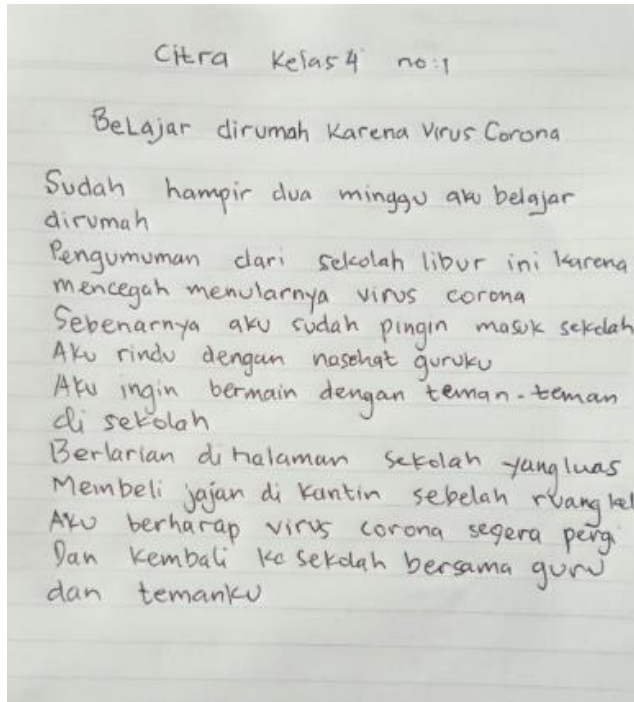 Citra Kelas 4 no:1
BeLajar dirumah Karena Virus Corona
Sudah hampir dua minggu aku belajar
dirumah
Pengumuman dari sekolah libur ini karena
mencegah menularnya virus corona
Sebenarnya aku sudah pingin masuk sekolah
Aku rindu dengan nasehat guruku
Aku ingin bermain dengan teman-teman
di sekolah
Berlarian di halaman sekolah yang luas
Membeli jajan di kantin sebelah ruang kel
Aku berharap virus corona segera pergi
Dan kembali ke sekolah bersama guru
dan temanku